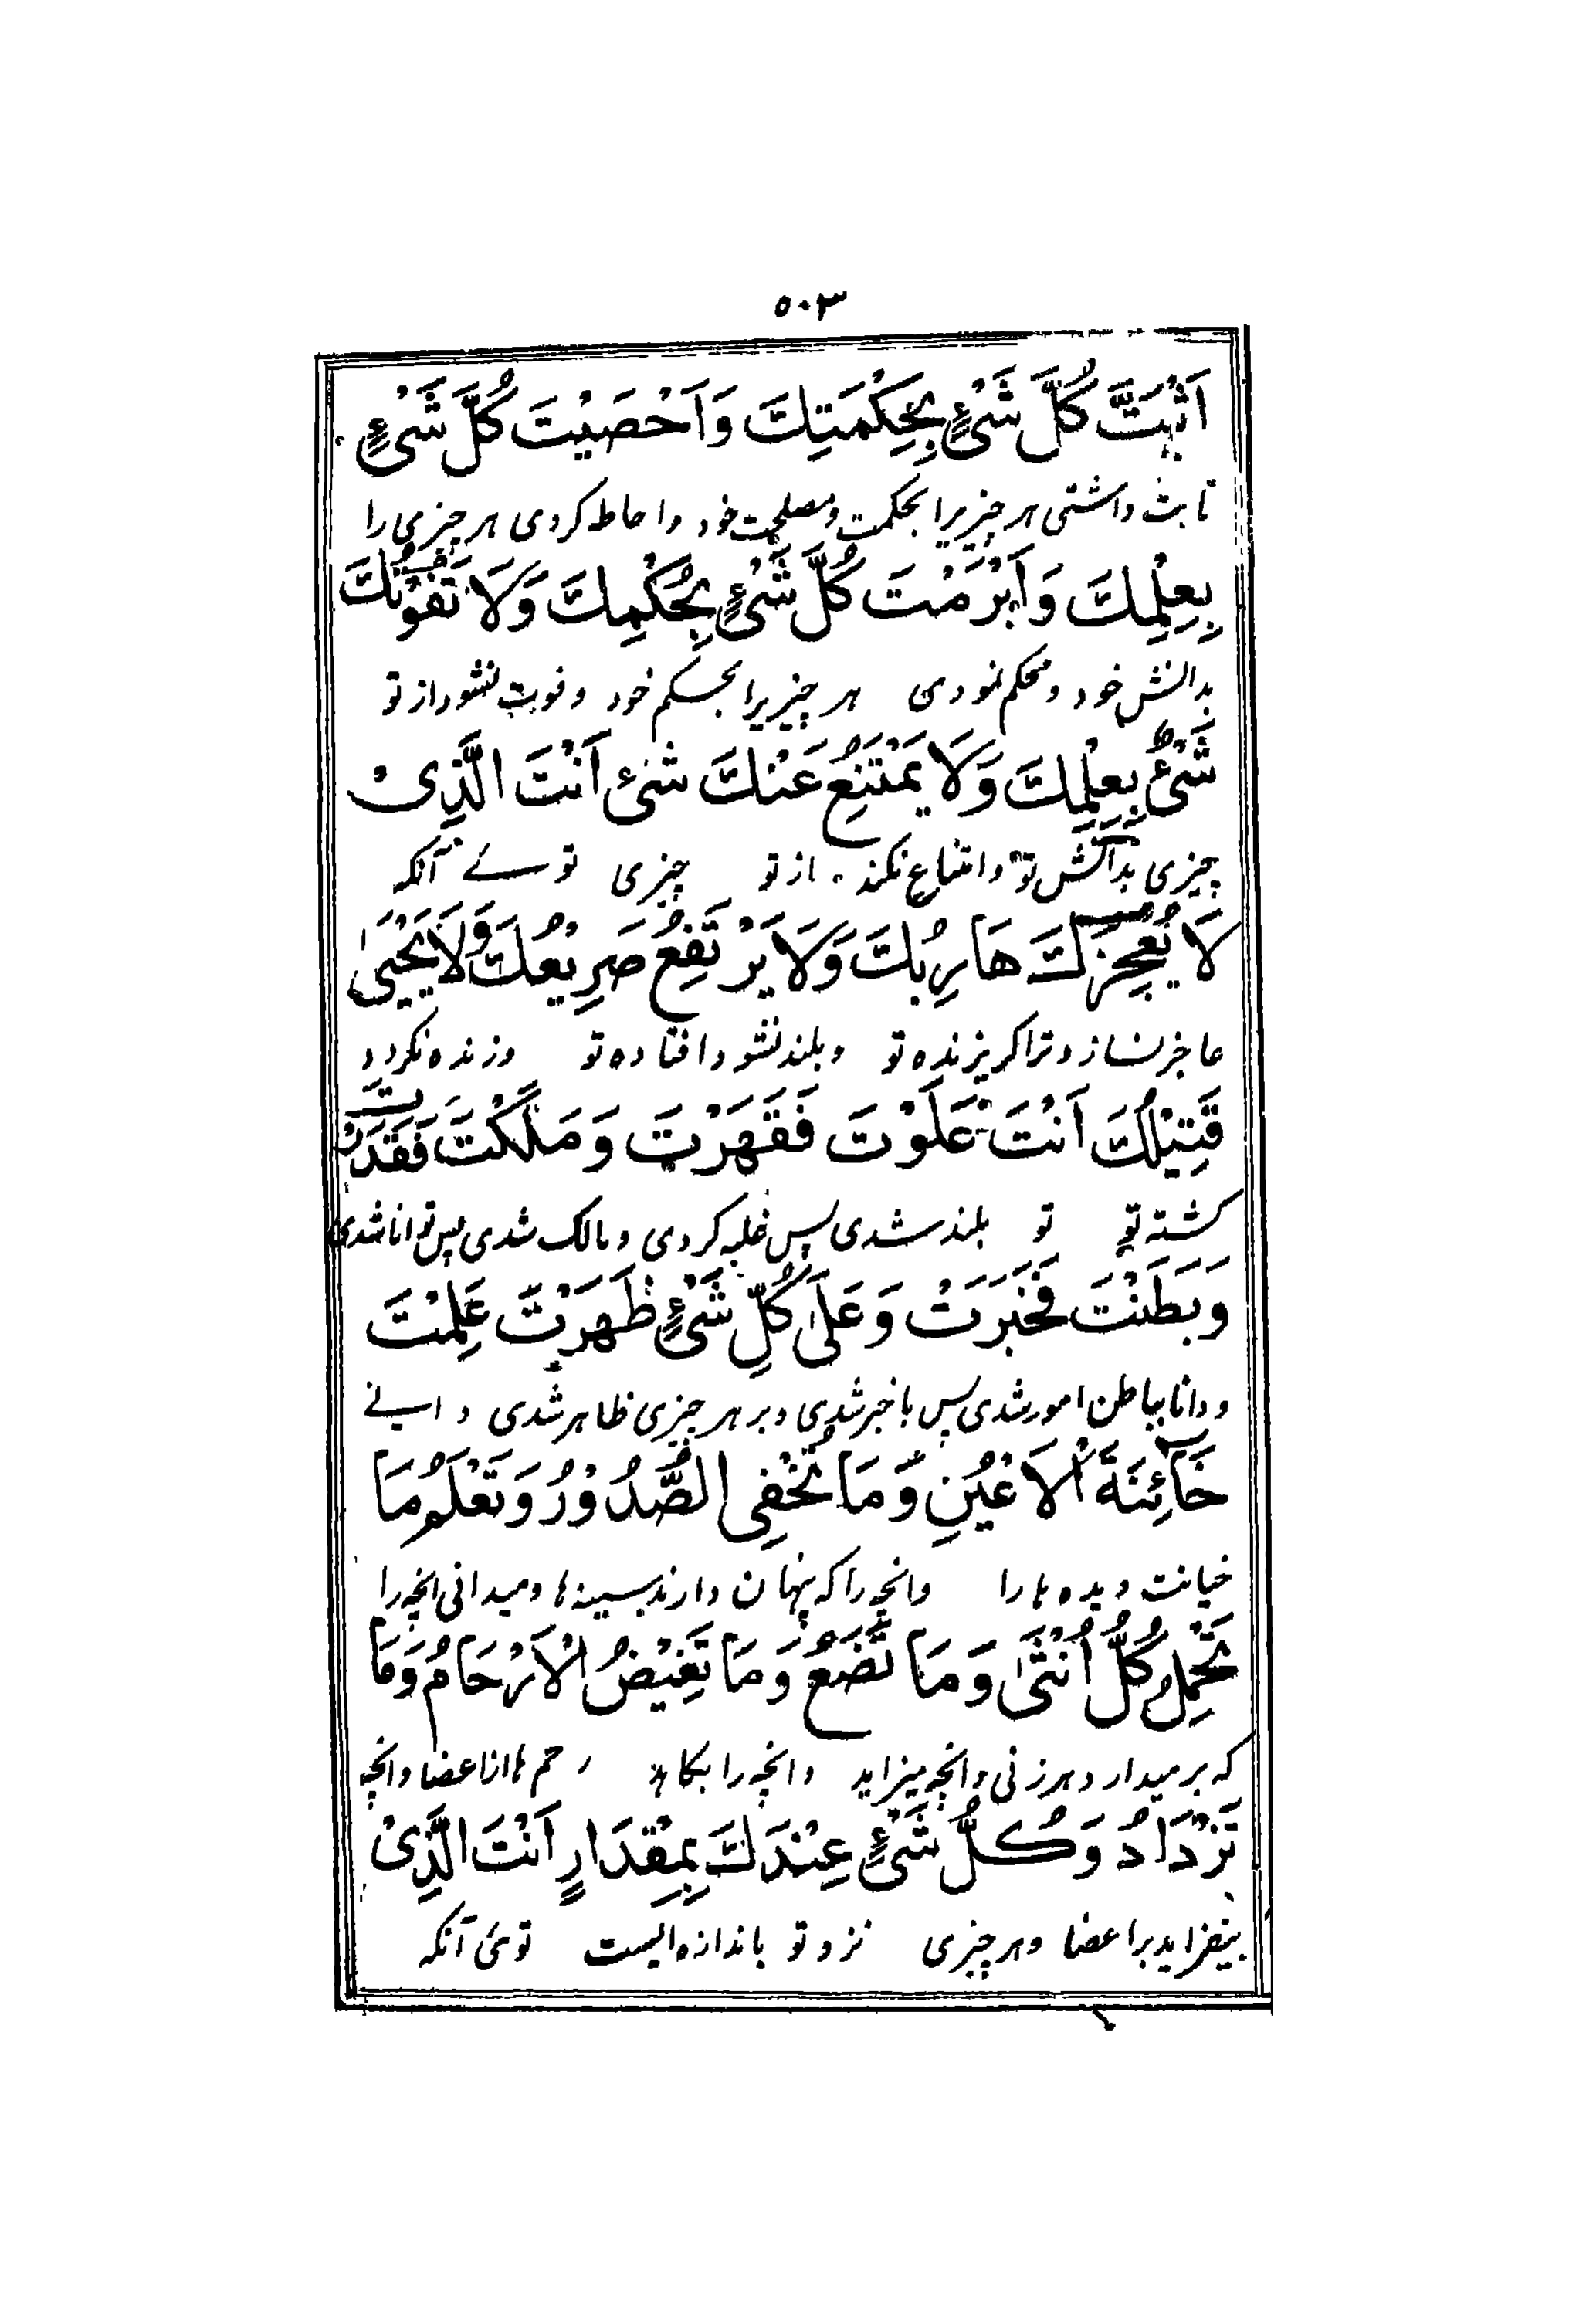 ۵۰۳
اَثْبَتَّ كُلَّ شَیْءٍ بِحِكْمَتِكَ وَاَحْصَیْتَ كُلَّ شَیْءٍ
ثابت داشتی هر چیزیرا بحکمت و مصلحت خود و احاطه کردی هر چیزی را
بِعِلْمِكَ وَاَبْرَمْتَ كُلَّ شَیْءٍ بِحُكْمِكَ وَلَا تَفُوْتُكَ
بدانش خود و محکم نمودی هر چیزیرا بحکم خود و فوت نشود از تو
شَیْءٌ بِعِلْمِكَ وَلَا یَمْتَنِعُ عَنْكَ شیء اَنْتَ الَّذِیْ
چیزی بدانش تو و امتناع نکند از تو چیزی توئے آنکه
لَا یُعْجِزُكَ هَارِبُكَ وَلَا یَرْتَفِعُ صَرِیْعُكَ وَلَا یَحْییٰ
عاجز نسازد ترا گریزنده تو و بلند نشود افتاده تو و زنده نگردد
قَتِیْلُكَ اَنْتَ عَلَوْتَ فَقَهَرْتَ وَمَلَكْتَ فَقَدَرْتَ
کشته تو تو بلند شدی پس غلبه کردی و مالک شدی پس توانا شدی
وَبَطَنْتَ فَخَبَرْتَ وَعَلیٰ كُلِّ شَیْءٍ ظَهَرْتَ عَلِمْتَ
و دانا بباطن امور شدی پس با خبر شدی و بر هر چیزی ظاهر شدی دانستے
خَائِنَةَ الْاَعْیُنِ وَمَا تُخْفِی الصُّدُوْرُ وَتَعْلَمُ مَا
خیانت دیده ها را و انچه را که پنهان دارند سینه ها و میدانی انچه را
تَحْمِلُ كُلُّ اُنْثیٰ وَمَا تَضَعُ وَمَا تَغِیْضُ الْاَرْحَامُ وَمَا
که بر میدارد هر زنی و انچه میزاید و انچه را بکاهد رحم ها از اعضا و انچه
تَزْدَادُ وَكُلُّ شَیْءٍ عِنْدَكَ بِمِقْدَارٍ اَنْتَ الَّذِیْ
بیفزاید بر اعضا و هر چیزی نزد تو باندازه ایست توئی آنکه